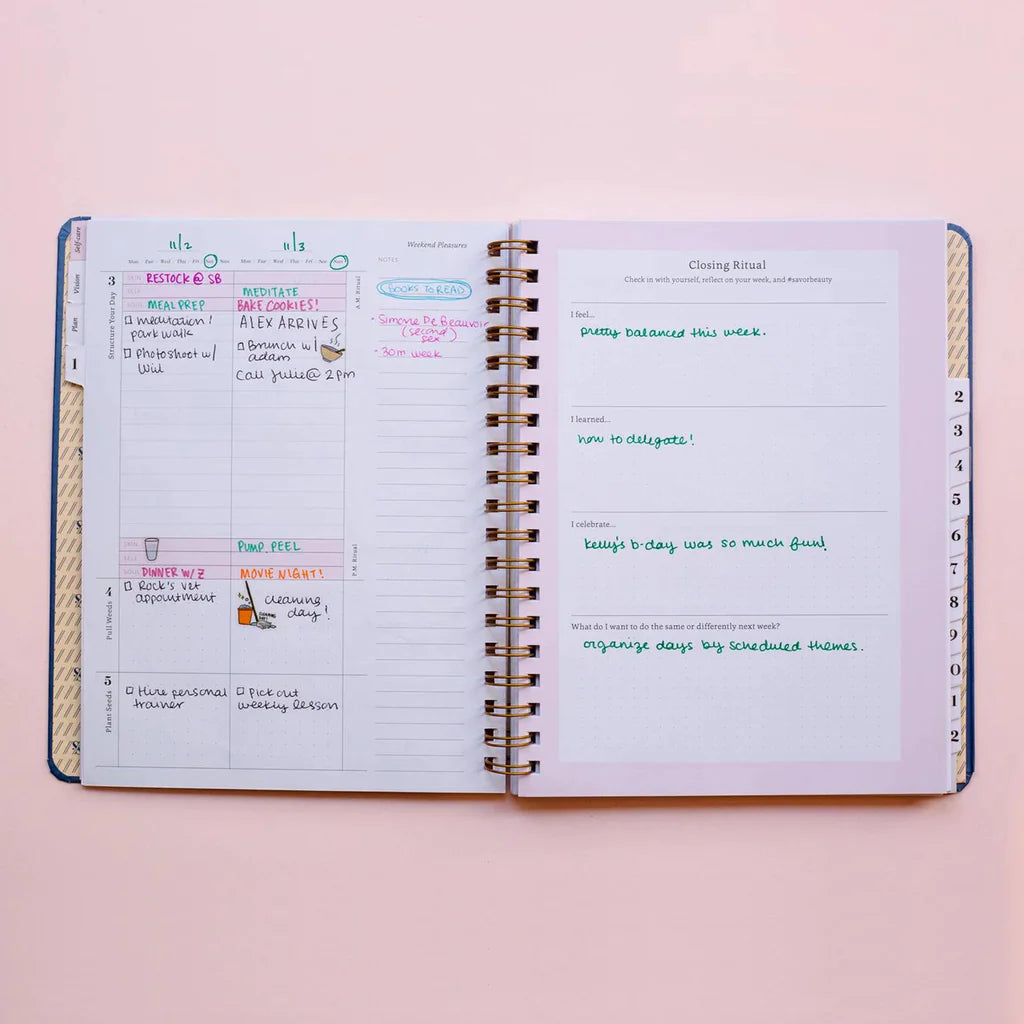 Self-care
Vision
Plan
1
11/2
11/3
Weekend Pleasures
Mon Tue Wed Thu Fri Sat Sun
Mon Tue Wed Thu Fri Sat Sun
3
Structure Your Day
A.M. Ritual
SKIN RESTOCK @ SB
SELF
MEDITATE
SOUL MEAL PREP
BAKE COOKIES!
meditation /
park walk
Photoshoot w/
Will
ALEX ARRIVES
Brunch w/
adam
Call Julie @ 2pm
P.M. Ritual
SKIN
SELF
SOUL DINNER W/ Z
PUMP PEEL
MOVIE NIGHT!
4
Pull Weeds
Rock's vet
appointment
cleaning
day!
5
Plant Seeds
Hire personal
trainer
Pick out
weekly lesson
NOTES
BOOKS TO READ
- Simone De Beauvoir
(second
sex)
- 30m week
Closing Ritual
Check in with yourself, reflect on your week, and #savorbeauty
I feel...
pretty balanced this week.
I learned...
how to delegate!
I celebrate...
Kelly's b-day was so much fun!
What do I want to do the same or differently next week?
organize days by scheduled themes.
2
3
4
5
6
7
8
9
0
1
2